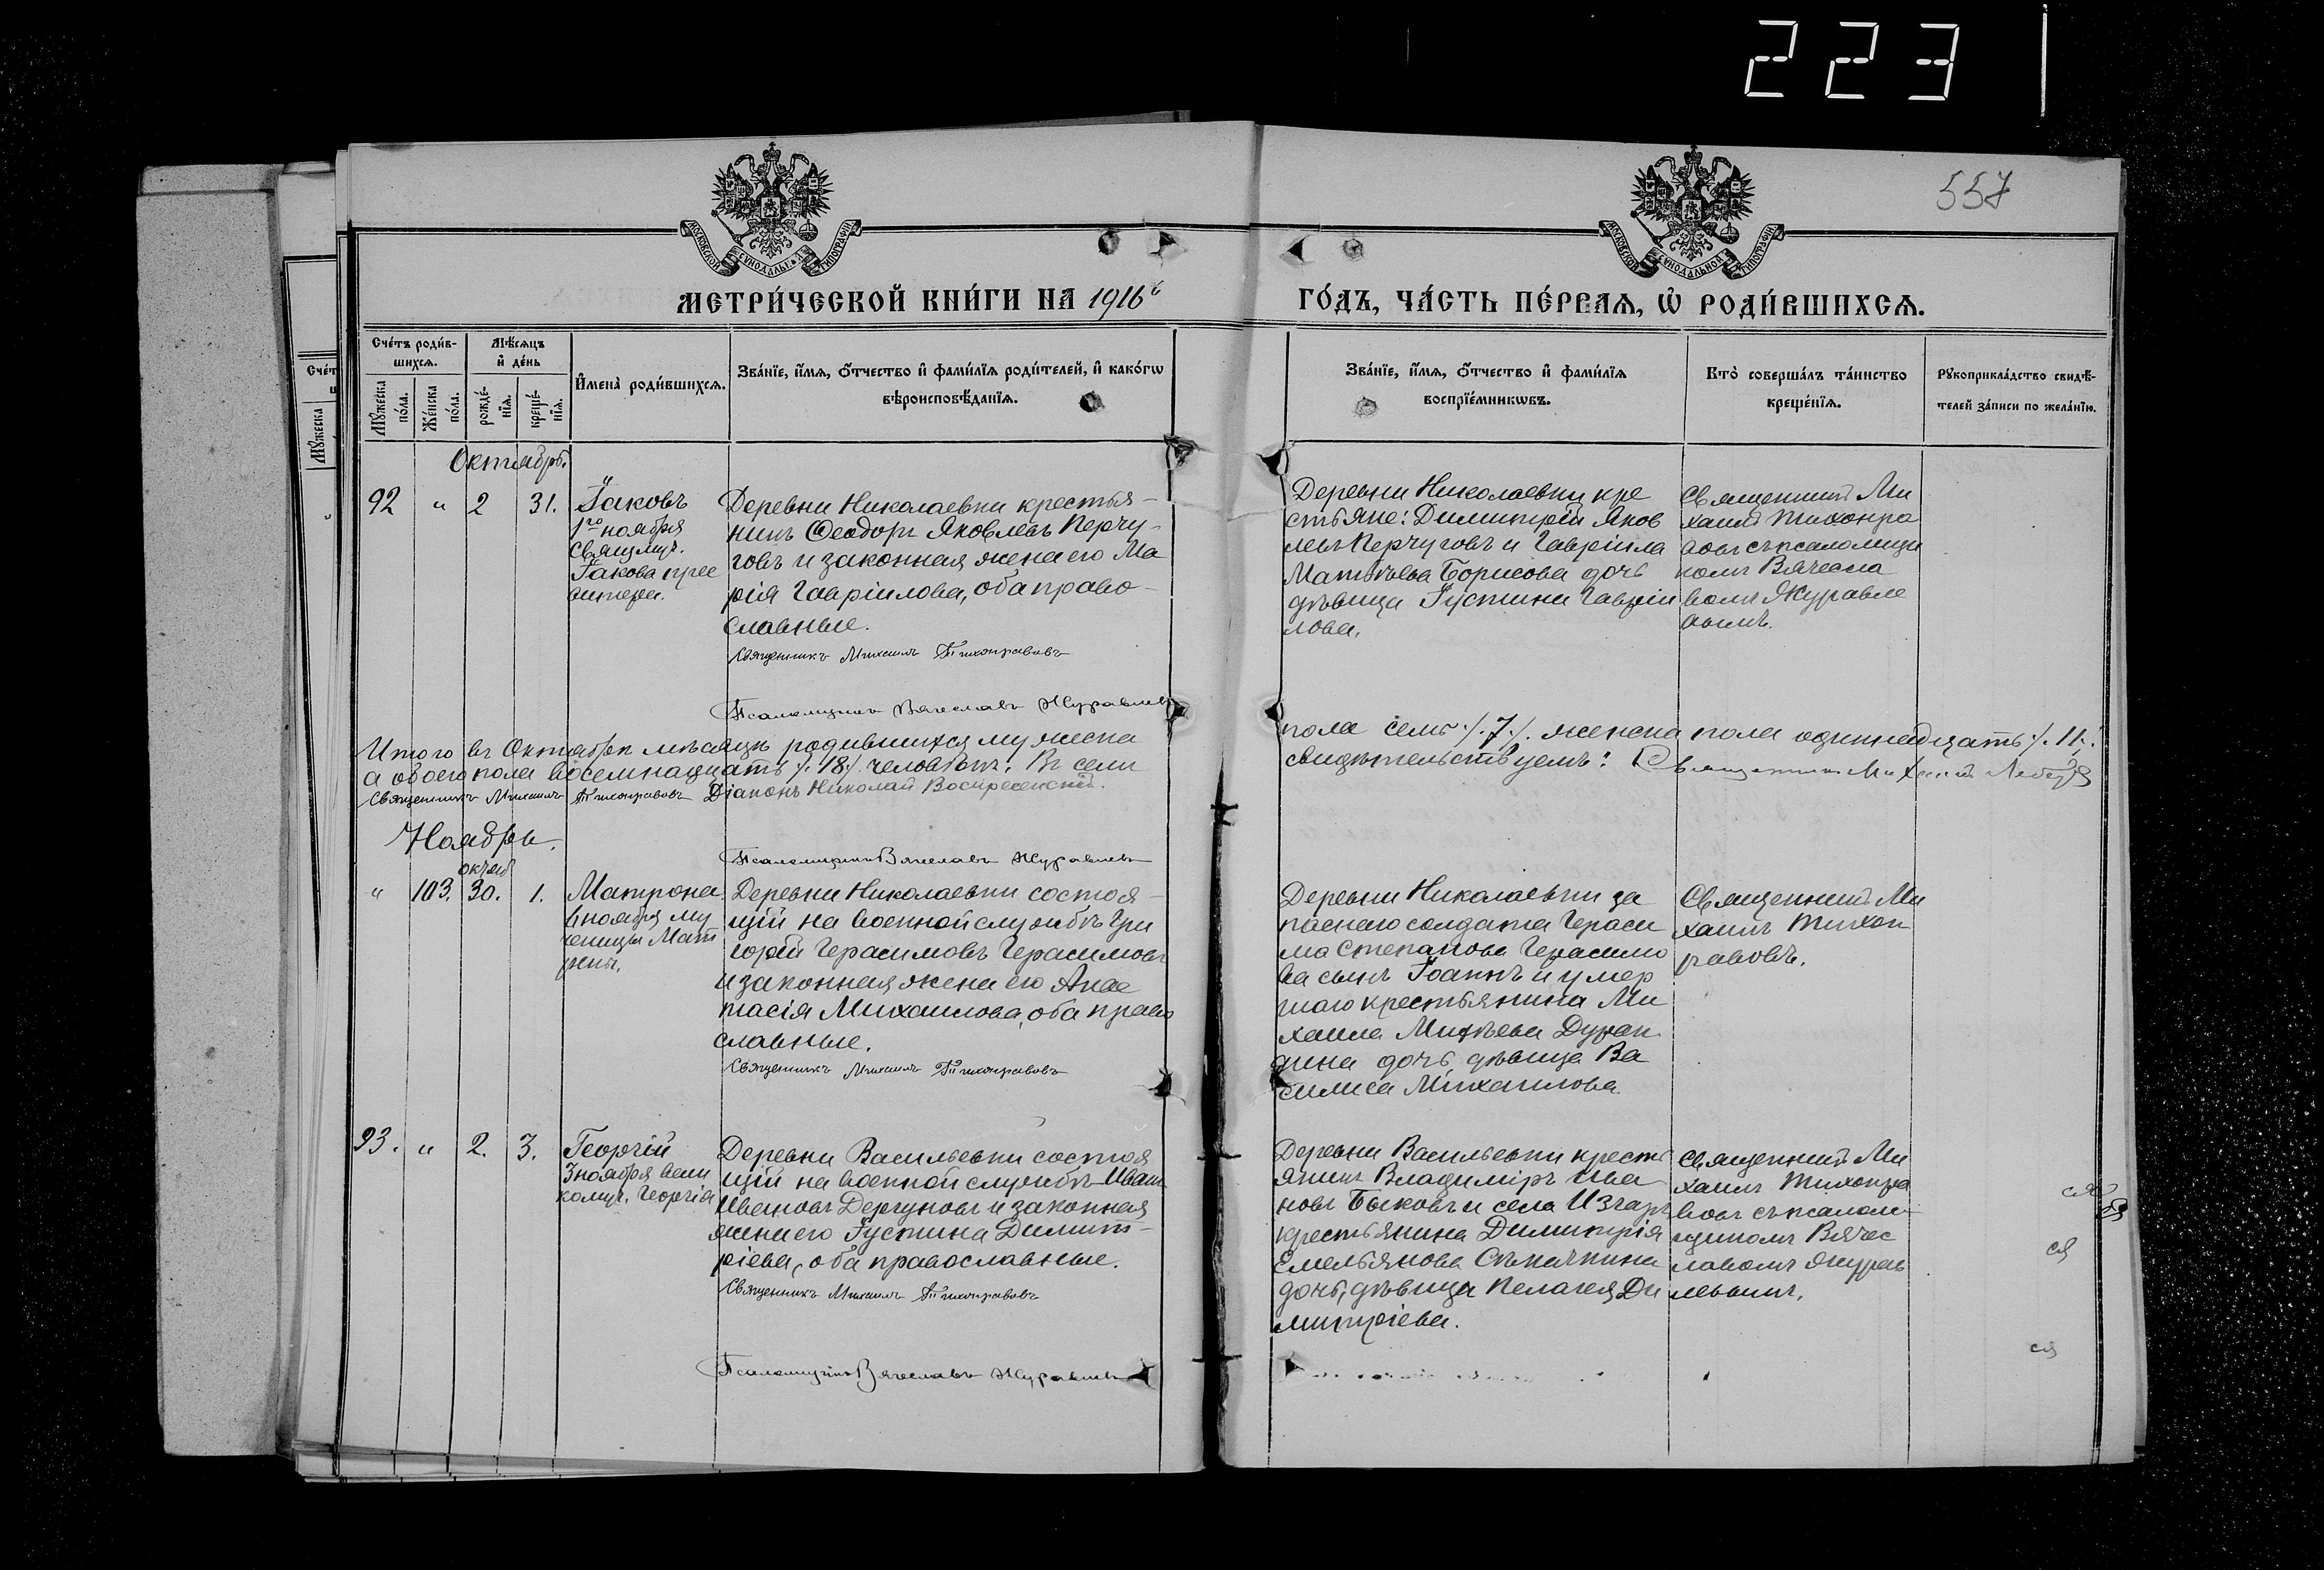 223
557
МОСКОВСКОЙ СУНОДАЛЬНОЙ ТИПОГРАФІИ
МОСКОВСКОЙ СУНОДАЛЬНОЙ ТИПОГРАФІИ
МЕТРИ́ЧЕСКОЙ КНИ́ГИ НА 1916
ГО́ДЪ, ЧА́СТЬ ПЕ́РВАЯ, Ѡ РОДИ́ВШИХСЯ.
Сче́тъ роди́в-
шихся.
Му́жеска по́ла.
Же́нска по́ла.
Мѣ́сяцъ
и де́нь
рожде́-
нія.
креще́-
нія.
Имена̀ роди́вшихся.
Зва́ніе, и́мя, о́тчество и фами́лія роди́телей, и како́гѡ
вѣроисповѣ́данія.
Зва́ніе, и́мя, о́тчество и фами́лія
воспріе́мникѡвъ.
Кто̀ соверша́лъ та́инство
креще́нія.
Рукоприкла́дство свидѣ́-
телей за́писи по жела́нію.
Октябрь.
92 " 2 31.
Іаковъ
1го ноября
Свящмуч.
Іакова прес
витера.
Деревни Николаевки крестья-
нинъ Ѳеодоръ Яковлевъ Перчу-
говъ и законная жена его Ма
рія Гавріилова, оба право-
славные.
Священникъ Михаилъ Тихонравовъ
Псаломщикъ Вячеславъ Журавлевъ
Деревни Николаевки кре
стьяне: Димитрій Яков
левъ Перчуговъ и Гавріила
Матѳѣева Борисова дочь
дѣвица Іустина Гавріи
лова.
Священникъ Ми
хаилъ Тихонра
вовъ съ псаломщи
комъ Вячесла
вомъ Журавле
вымъ.
Итого въ Октябрѣ мѣсяцѣ родившихся мужеска
пола семь ./.7./. женска пола одиннадцать ./.11./.
а обоего пола восемнадцать ./.18./. человѣкъ. Въ семъ
свидѣтельствуемъ: Священникъ Михаилъ
Священникъ Михаилъ Тихонравовъ Діаконъ Николай Воскресенскій.
Псаломщикъ Вячеславъ Журавлевъ
Ноябрь.
октяб
" 103. 30. 1.
Матрона
6 ноября му
ченицы Мат
роны.
Деревни Николаевки состоя-
щій на военной службѣ Гри
горій Герасимовъ Герасимовъ
и законная жена его Анас
тасія Михаилова, оба право
славные.
Священникъ Михаилъ Тихонравовъ
Деревни Николаевки за
паснаго солдата Гераси
ма Степанова Герасимо
ва сынъ Іоаннъ и умер
шаго крестьянина Ми
хаила Михѣева Дуран
дина дочь, дѣвица Ва
силиса Михаилова
Священникъ Ми
хаилъ Тихон
равовъ.
93. " 2. 3.
Георгій
3 ноября вели
комуч. Георгія
Деревни Васильевки состоя
щій на военной службѣ Иванъ
Ивановъ Дергуновъ и законная
жена его Іустина Димит-
ріева, оба православные.
Священникъ Михаилъ Тихонравовъ
Псаломщикъ Вячеславъ Журавлевъ
Деревни Васильевки кресть
янинъ Владиміръ Ива
новъ Быковъ и села Изгаръ
крестьянина Димитрія
Емельянова
дочь, дѣвица Пелагея Ди
митріева.
Священникъ Ми
хаилъ Тихонра
вовъ съ псалом-
щикомъ Вячес
лавомъ Журав
левымъ.